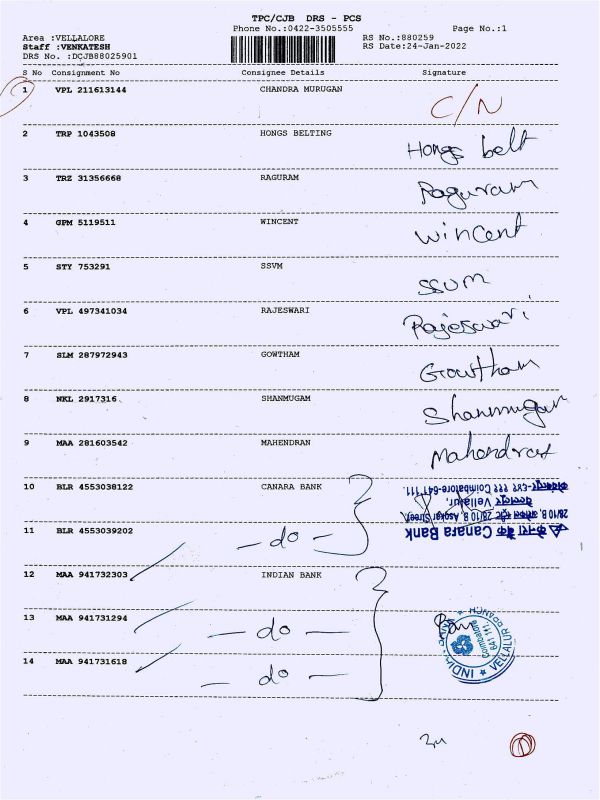 TPC/CJB DRS - PCS
Phone No.:0422-3505555
Page No.:1
Area :VELLALORE
RS No.:880259
Staff :VENKATESH
RS Date:24-Jan-2022
DRS No. :DCJB88025901
S No Consignment No Consignee Details Signature
1 VPL 211613144 CHANDRA MURUGAN C/N
2 TRP 1043508 HONGS BELTING Hongs belt
3 TRZ 31356668 RAGURAM Raguram
4 GPM 5119511 WINCENT Wincent
5 STY 753291 SSVM SSVM
6 VPL 497341034 RAJESWARI Rajeswari
7 SLM 287972943 GOWTHAM Gowtham
8 NKL 2917316 SHANMUGAM Shanmugam
9 MAA 281603542 MAHENDRAN Mahendran
10 BLR 4553038122 CANARA BANK
11 BLR 4553039202 - do -
केनरा बैंक Canara Bank
28/10 B, Asokar Street
Vellalur,
Coimbatore-641 111.
12 MAA 941732303 INDIAN BANK
13 MAA 941731294 - do -
14 MAA 941731618 - do -
VELLALUR BRANCH
Coimbatore
641 111.